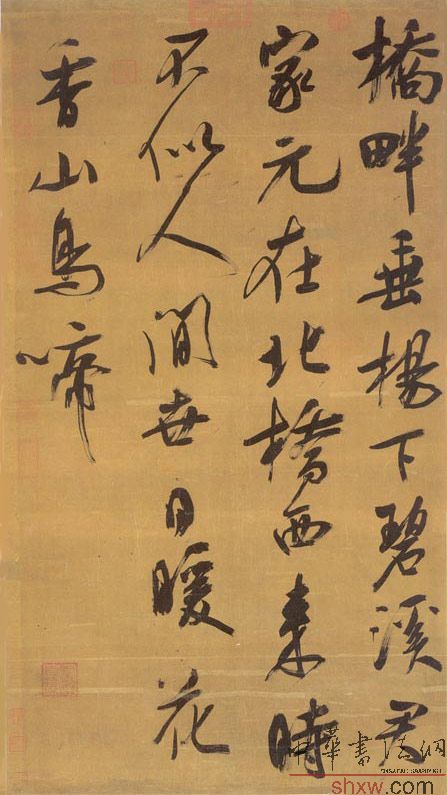 橋畔垂楊下碧溪君
家元在北橋西來時
不似人間世日暖花
香山鳥啼
中華書法網
shxw.com